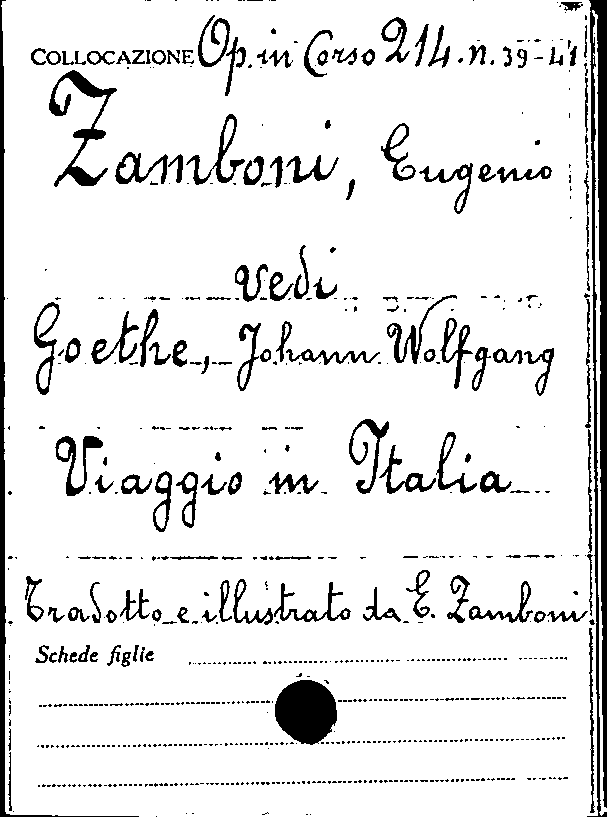 COLLOCAZIONE Op. in Corso 214. n. 39-41
Zamboni, Eugenio
vedi
Goethe, Johann Wolfgang
Viaggio in Italia
Tradotto e illustrato da E. Zamboni
Schede figlie